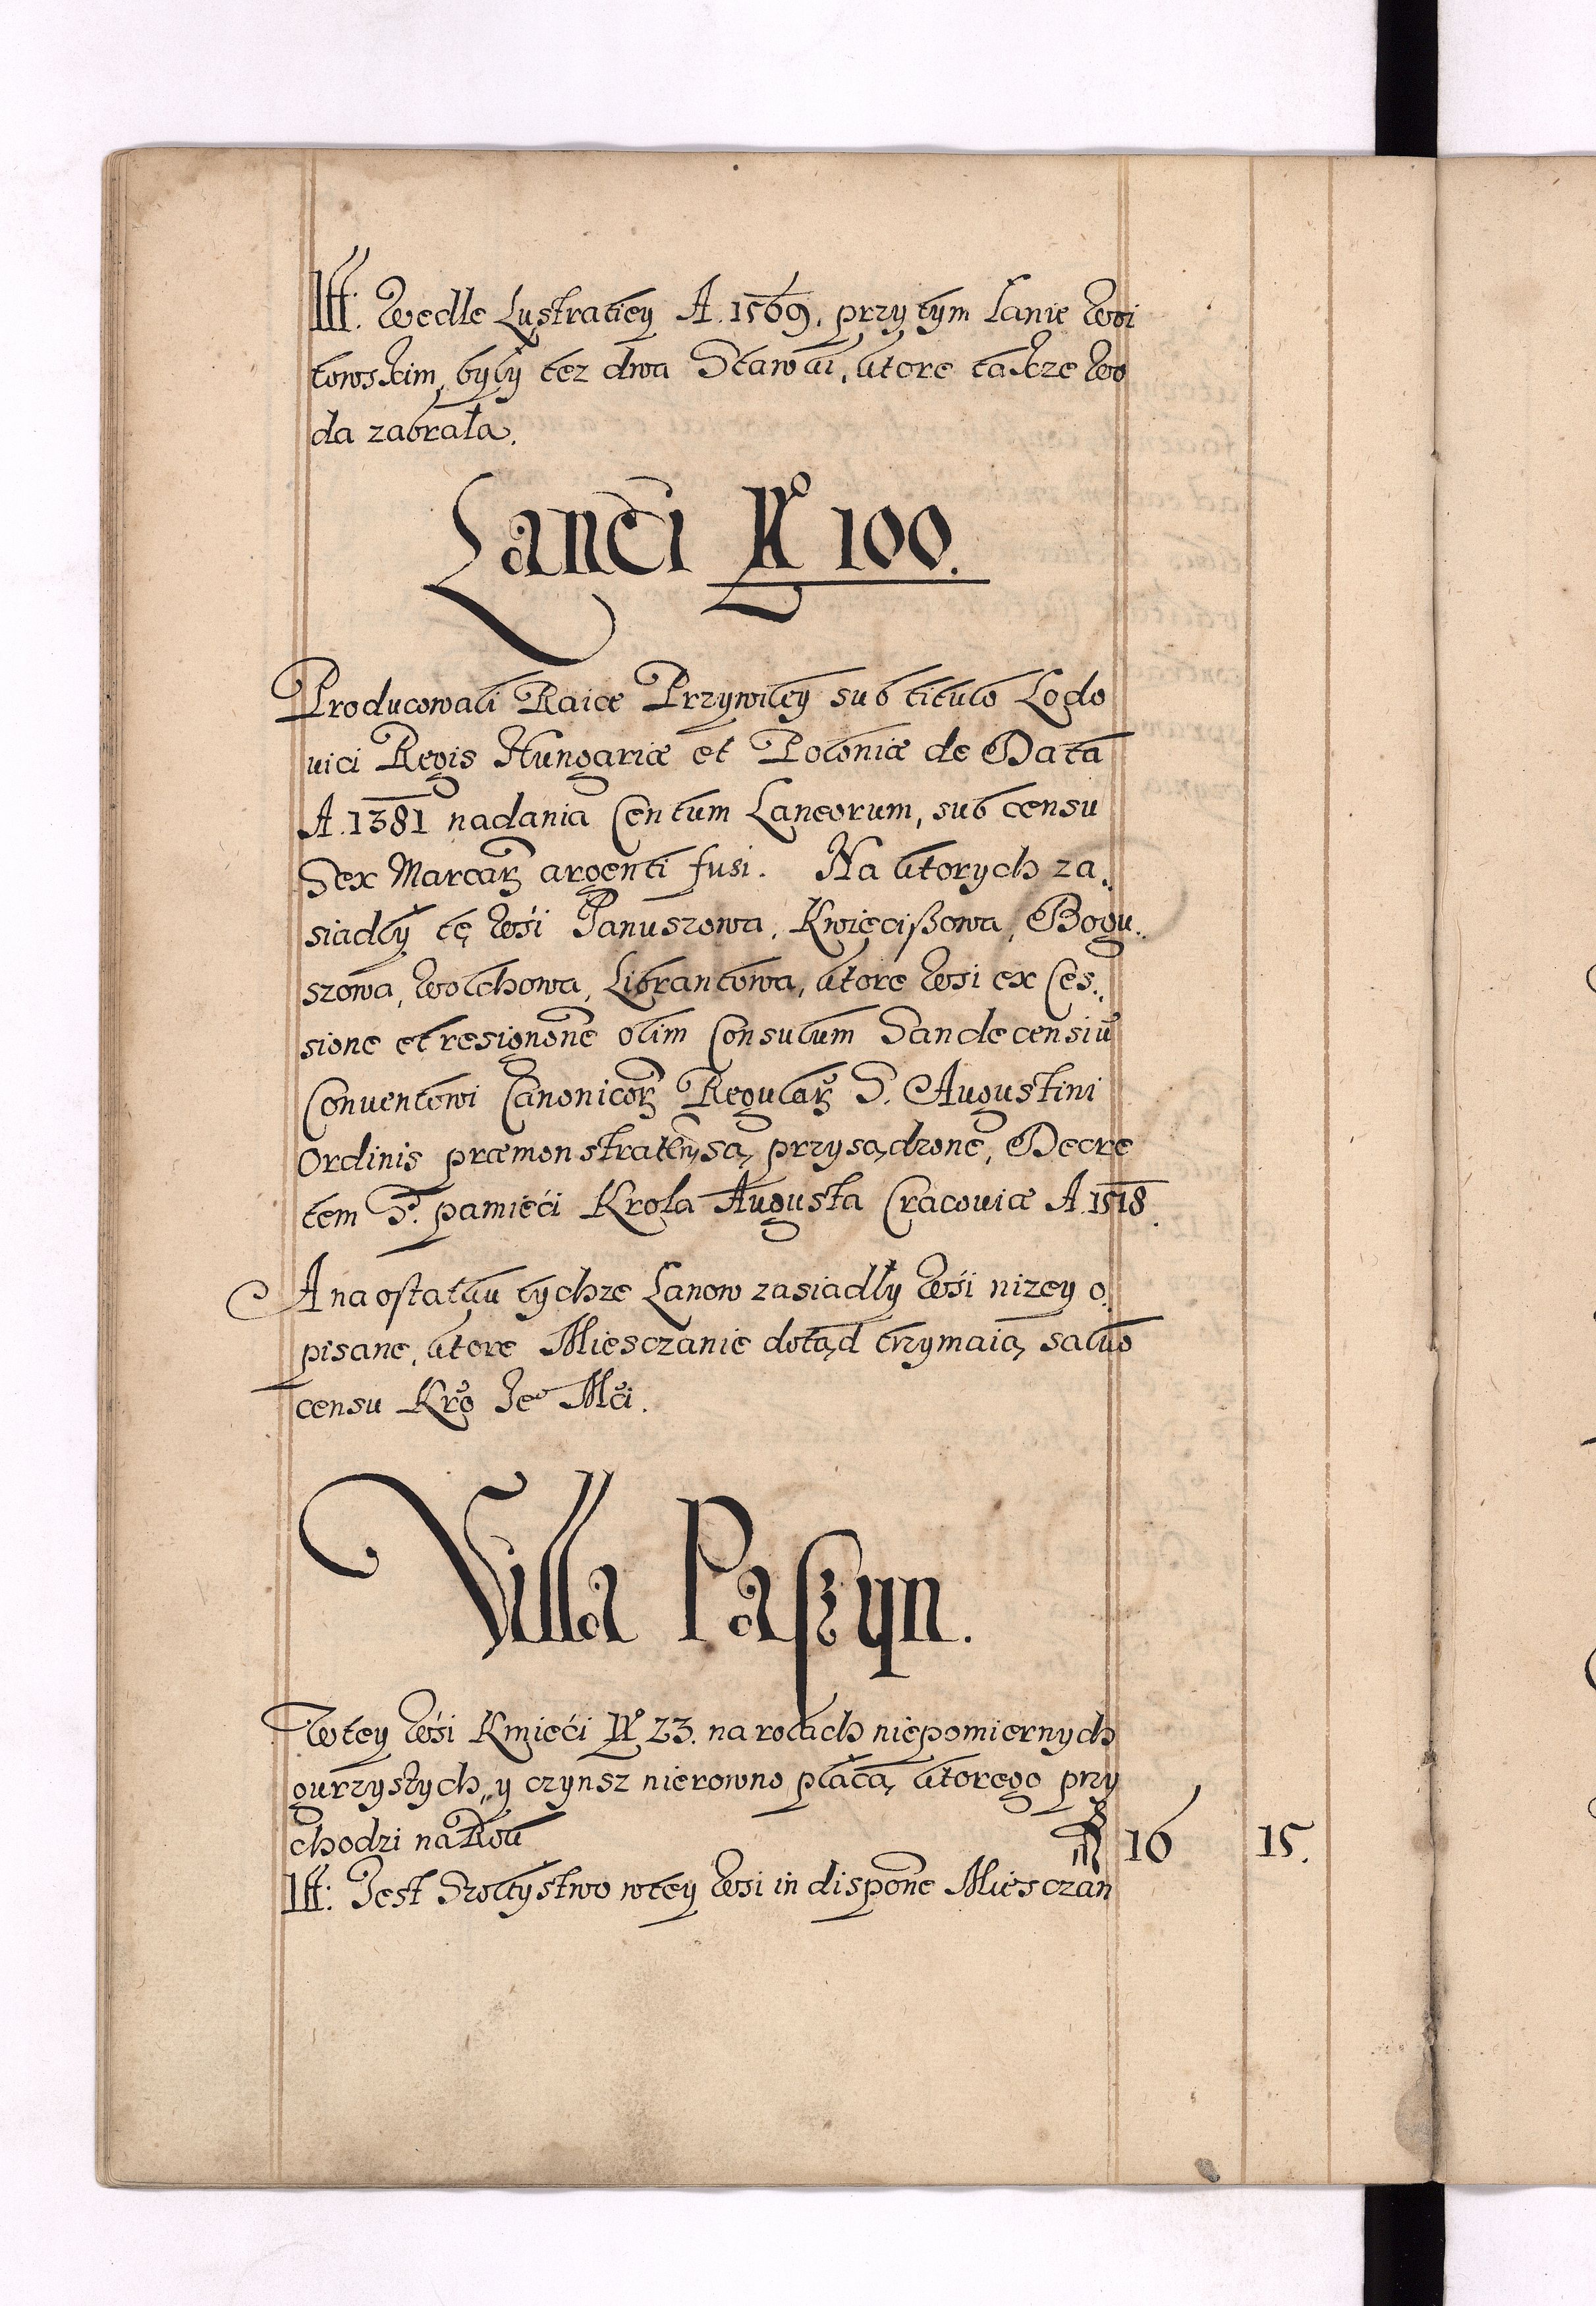 Itt: Wedle Lustratiey A. 1569. przy tym Łanie Woi
towskim, były tez dwa Stawki, ktore takze Wo
da zabrała.
Lanei No 100.
Producowali Raice Przywiley sub titulo Lodo
uici Regis Hungariæ et Poloniæ de Data
A. 1381 nadania Centum Laneorum, sub censu
Sex Marcarꝝ argenti fusi. Na ktorych za„
siadły tę Wśi Januszowa, Kwięcißowa, Bogu„
szowa, Wolchowa, Librantowa, ktore Wsi ex Ces„
sione et resignone olim Consulum Sandecensiu
Conuentowi Canonicorꝝ Regularꝝ S. Augustini
Ordinis præmonstraten, są przysądzone, Decre
tem S. pamięći Krola Augusta Cracouiæ A. 1518.
A na ostatku tychze Łanow zasiadły Wśi nizey o„
pisane, ktore Miesczanie dotąd trzymaią, saluo
censu Kro Je° Mći.
Villa Paszyn.
W tey Wśi Kmieći No 23. na rolach niepomiernych
gurzystych, y czynsz nierowno płacą, ktorego przy
chodzi na Rok fl 16 15.
Itt: Jest Szołtystwo w tey Wsi in dispone Miesczan